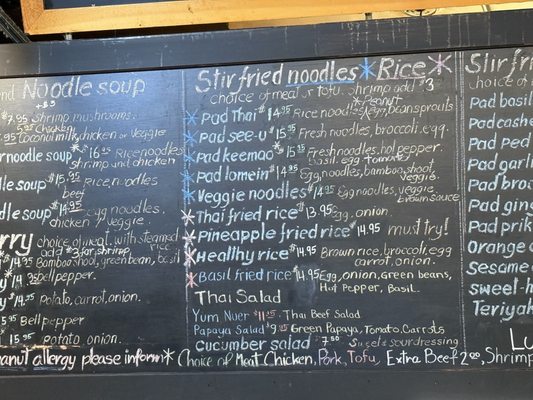 Noodle soup
+$3
$7.95 Shrimp mushrooms.
5.95 Chicken
7.95 Coconut milk, chicken or veggie
noodle soup $16.95 Rice noodles
shrimp and chicken
dle soup $15.95 Rice noodles
beef
dle soup $14.95 egg noodles,
chicken / veggie.
rry choice of meat with steamed rice
add $3 for shrimp
14.95 Bamboo shoot, green bean, basil
14.95 Bell pepper.
14.95 Potato, carrot, onion.
5.95 Bell pepper
15.95 Potato, onion.
anut allergy please inform
Stir fried noodles * Rice *
choice of meat or tofu. Shrimp add $3
* Peanut
* Pad Thai $14.95 Rice noodles, egg, bean sprouts
* Pad see-u $15.95 Fresh noodles, broccoli, egg.
* Pad keemao $15.95 Fresh noodles, hot pepper.
basil. egg. tomatoes
* Pad lomein $14.95 Egg noodles, bamboo, shoot,
veggie.
* Veggie noodles $14.95 Egg noodles, veggie
brown sauce
* Thai fried rice $13.95 Egg, onion.
* Pineapple fried rice $14.95 must try!
* Healthy rice $14.95 Brown rice, broccoli, egg
carrot, onion.
* Basil fried rice $14.95 Egg, onion, Green beans,
Hot Pepper, Basil.
Thai Salad
Yum Nuer $11.25. Thai Beef Salad
Papaya Salad $9.25 Green Papaya, Tomato, Carrots
Cucumber salad $7.50 Sweet & sour dressing
* Choice of Meat Chicken, Pork, Tofu, Extra Beef 2.00, Shrimp
Stir f
choice of
Pad basil
Pad cashe
Pad ped
Pad garli
Pad broc
Pad ging
Pad prik
Orange c
Sesame
sweet-n
Teriyak
Lu